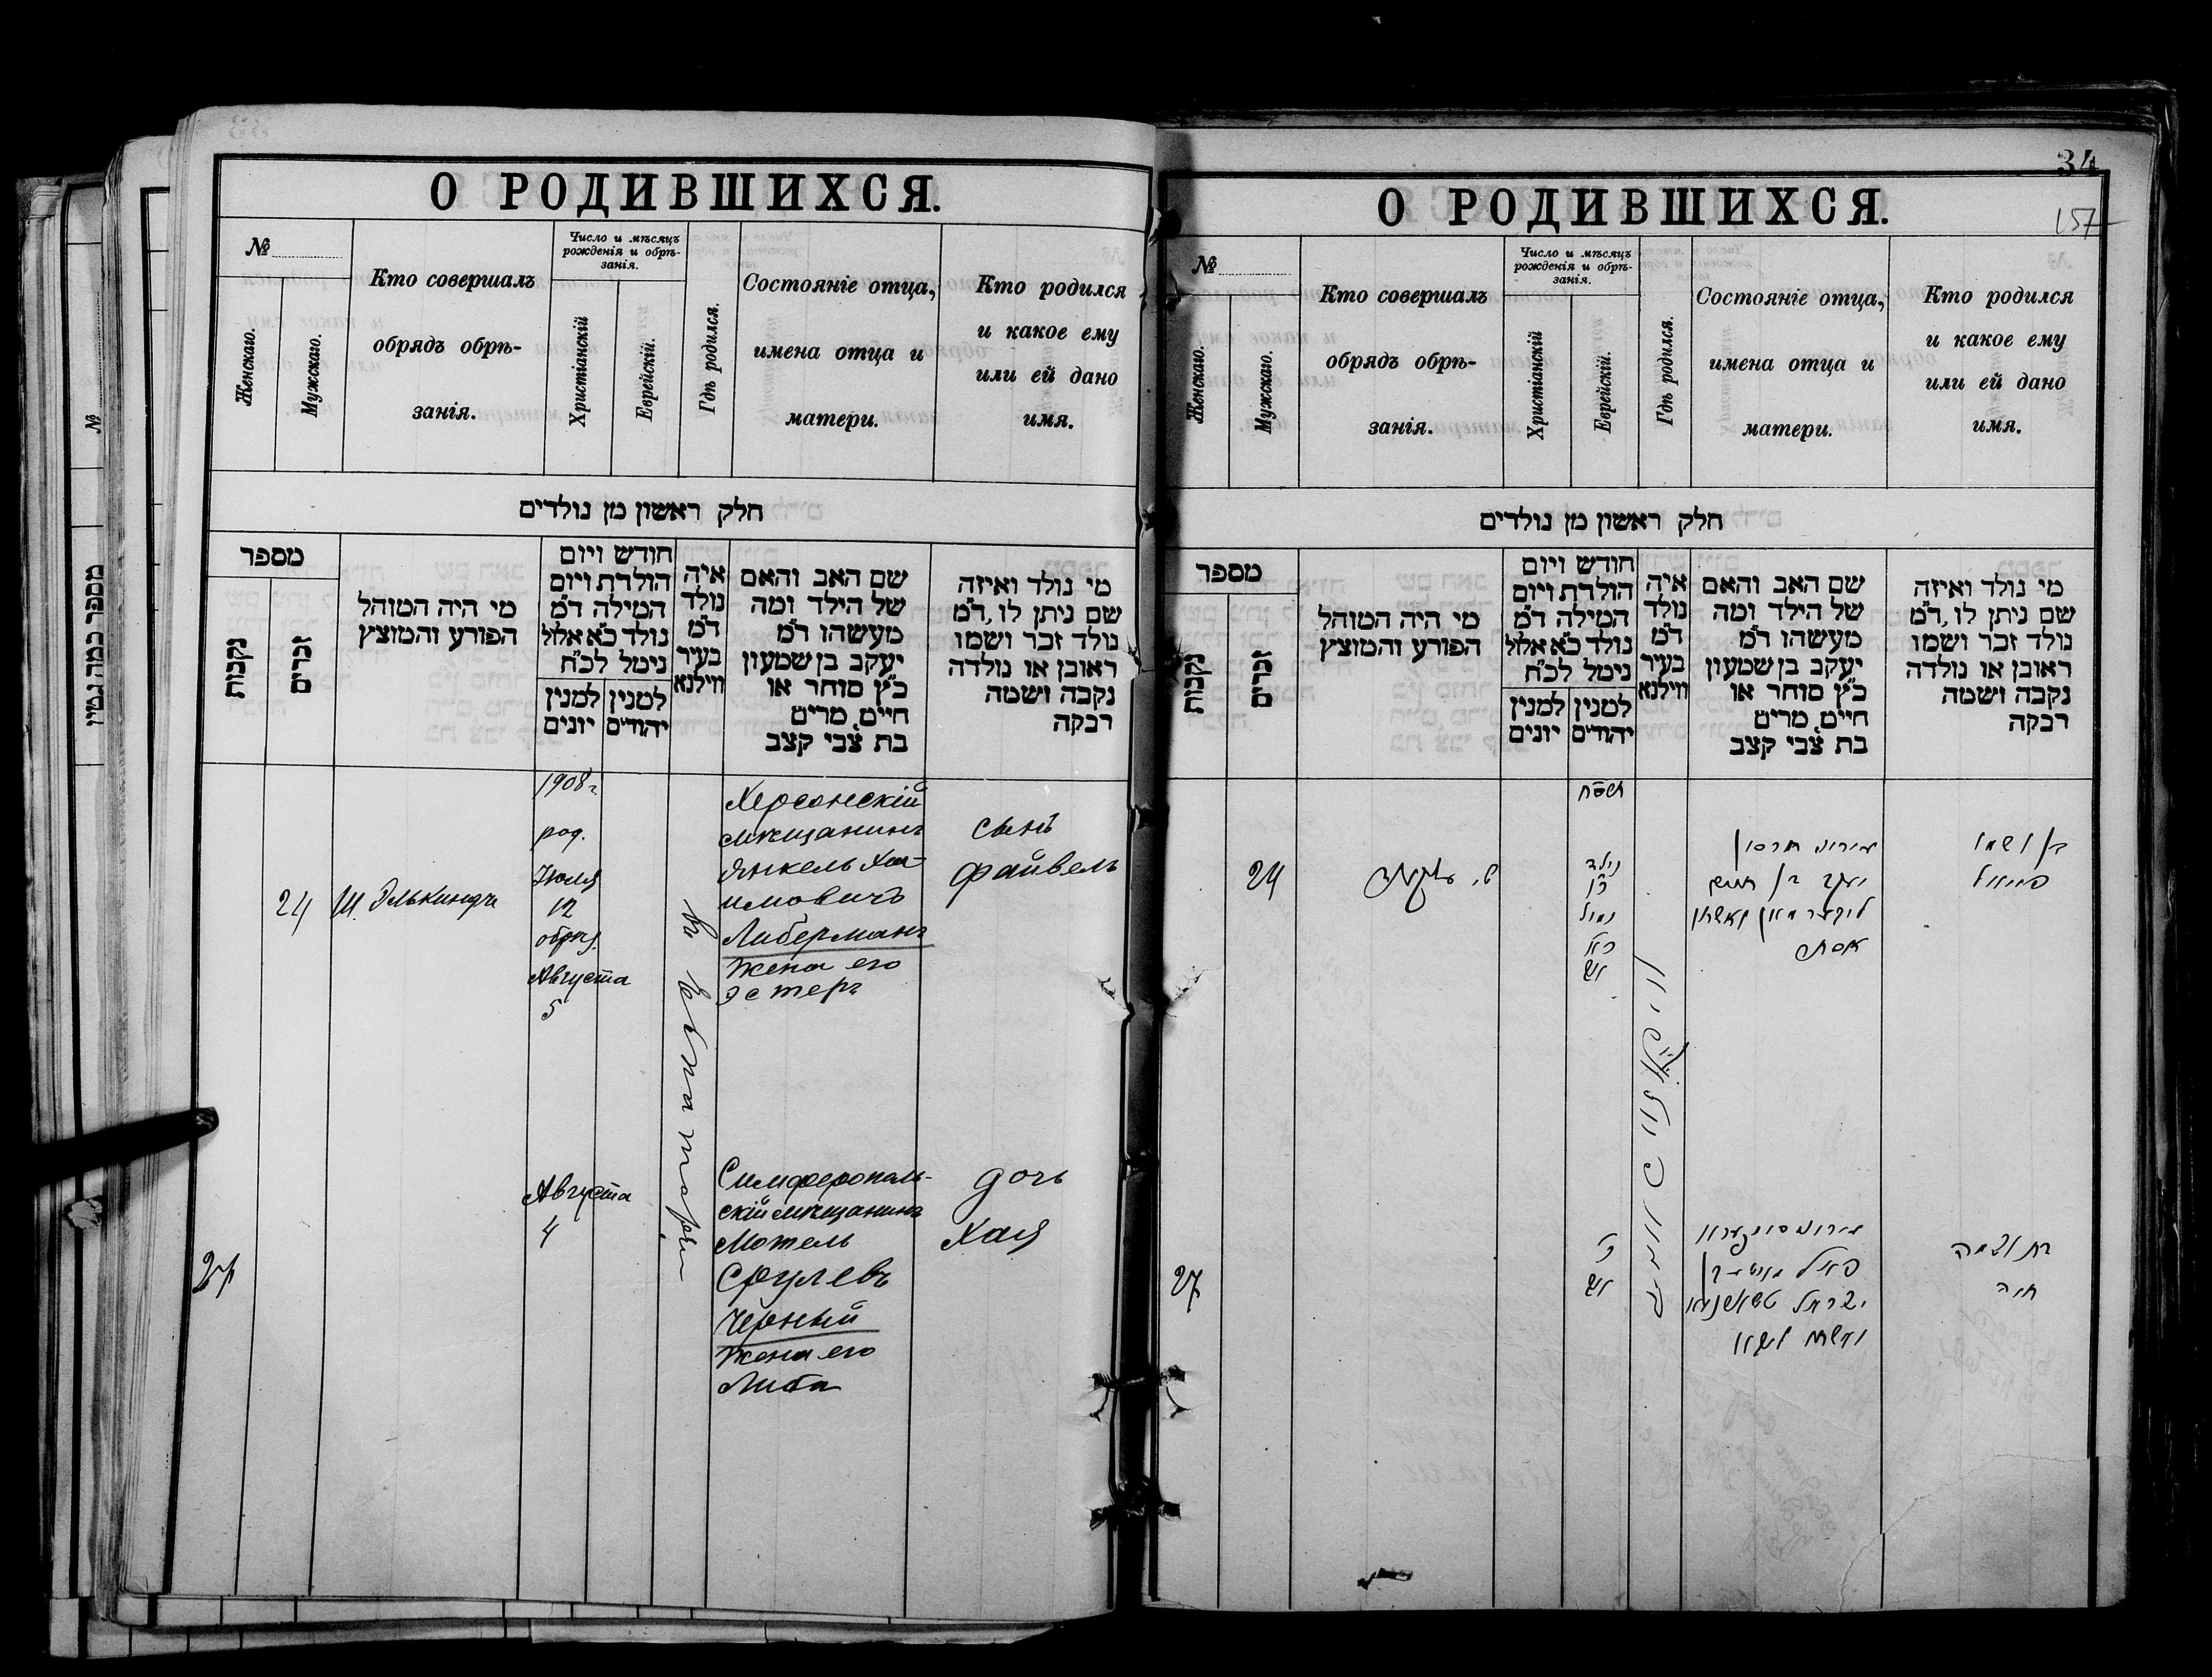 О РОДИВШИХСЯ.
№
Женскаго.
Мужскаго.
Кто совершалъ
обрядъ обрѣ-
занія.
Число и мѣсяцъ
рожденія и обрѣ-
занія.
Христіанскій
Еврейскій.
Гдѣ родился.
Состояніе отца,
имена отца и
матери.
Кто родился
и какое ему
или ей дано
имя.
חלק ראשון מן נולדים
מספר
נקבות
זכרים
מי היה המוהל
הפורע והמוצץ
חודש ויום
הולדת ויום
המילה ד״מ
נולד כ״א אלול
נימל לכ״ח
למנין יהודים
למנין יונים
איה
נולד
ד״מ
בעיר
ווילנא
שם האב והאם
של הילד ומה
מעשהו ד״מ
יעקב בן שמעון
כ״ץ סוחר או
חיים, מרים
בת צבי קצב
מי נולד ואיזה
שם ניתן לו, ד״מ
נולד זכר ושמו
ראובן או נולדה
נקבה ושמה
רבקה
24
Ш. Элькиндъ
1908 г.
род.
Іюля
12
обрѣз.
Августа
5
Въ Евпаторіи
Херсонскій
мѣщанинъ
Янкель Хаи-
мовичъ
Либерманъ
жена его
Эстеръ
сынъ
Файвель
27
Августа
4
Симферополь-
скій мѣщанинъ
Мотель
Срулевъ
Черный
жена его
Либа
дочь
Хая
34
157
О РОДИВШИХСЯ.
№
Женскаго.
Мужскаго.
Кто совершалъ
обрядъ обрѣ-
занія.
Число и мѣсяцъ
рожденія и обрѣ-
занія.
Христіанскій
Еврейскій.
Гдѣ родился.
Состояніе отца,
имена отца и
матери.
Кто родился
и какое ему
или ей дано
имя.
חלק ראשון מן נולדים
מספר
נקבות
זכרים
מי היה המוהל
הפורע והמוצץ
חודש ויום
הולדת ויום
המילה ד״מ
נולד כ״א אלול
נימל לכ״ח
למנין יהודים
למנין יונים
איה
נולד
ד״מ
בעיר
ווילנא
שם האב והאם
של הילד ומה
מעשהו ד״מ
יעקב בן שמעון
כ״ץ סוחר או
חיים, מרים
בת צבי קצב
מי נולד ואיזה
שם ניתן לו, ד״מ
נולד זכר ושמו
ראובן או נולדה
נקבה ושמה
רבקה
24
נולד
נמול
עירוני חרסון
יעקב בן חיים
ליבערמאן ואשתו
אסתר
בן ושמו
פייוול
27
ישראל
ואשתו ליבא
בת ושמה
חיה